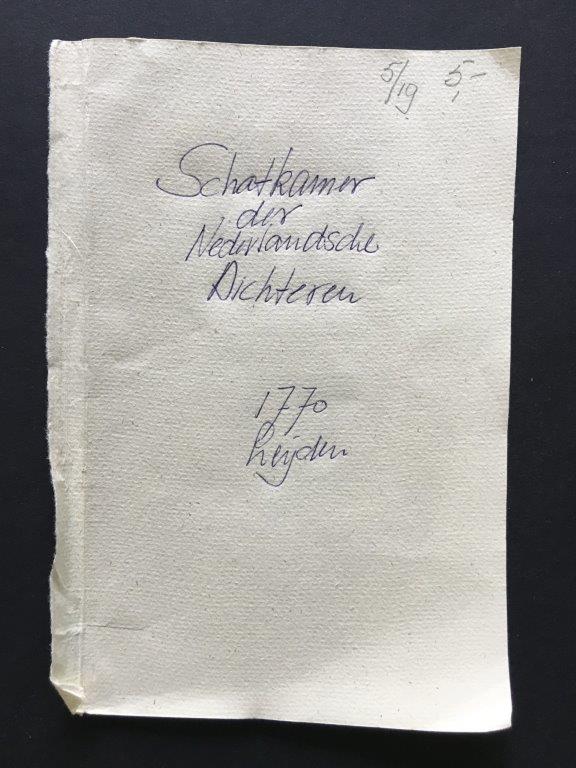 5/19 5,-
Schatkamer
der
Nederlandsche
Dichteren
1770
Leijden